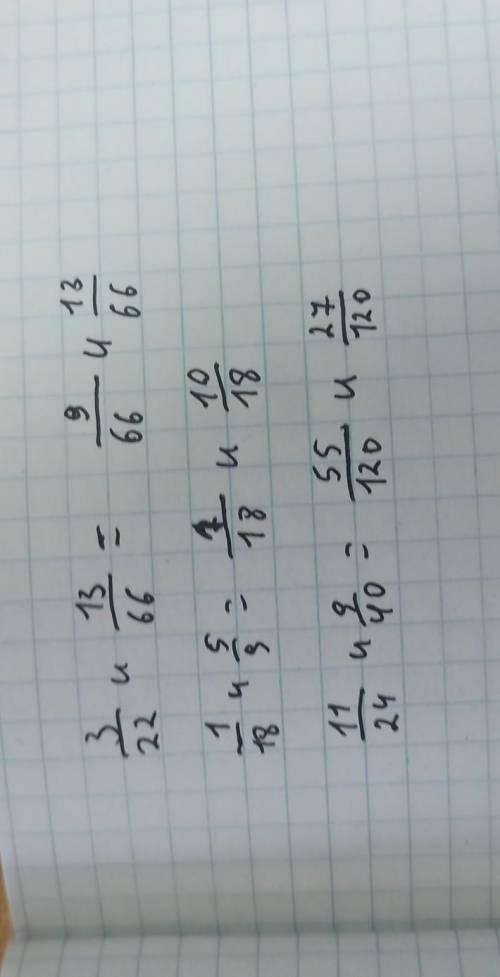 3/22 и 13/66 = 9/66 и 13/66
1/18 и 5/9 = 1/18 и 10/18
11/24 и 9/40 = 55/120 и 27/120